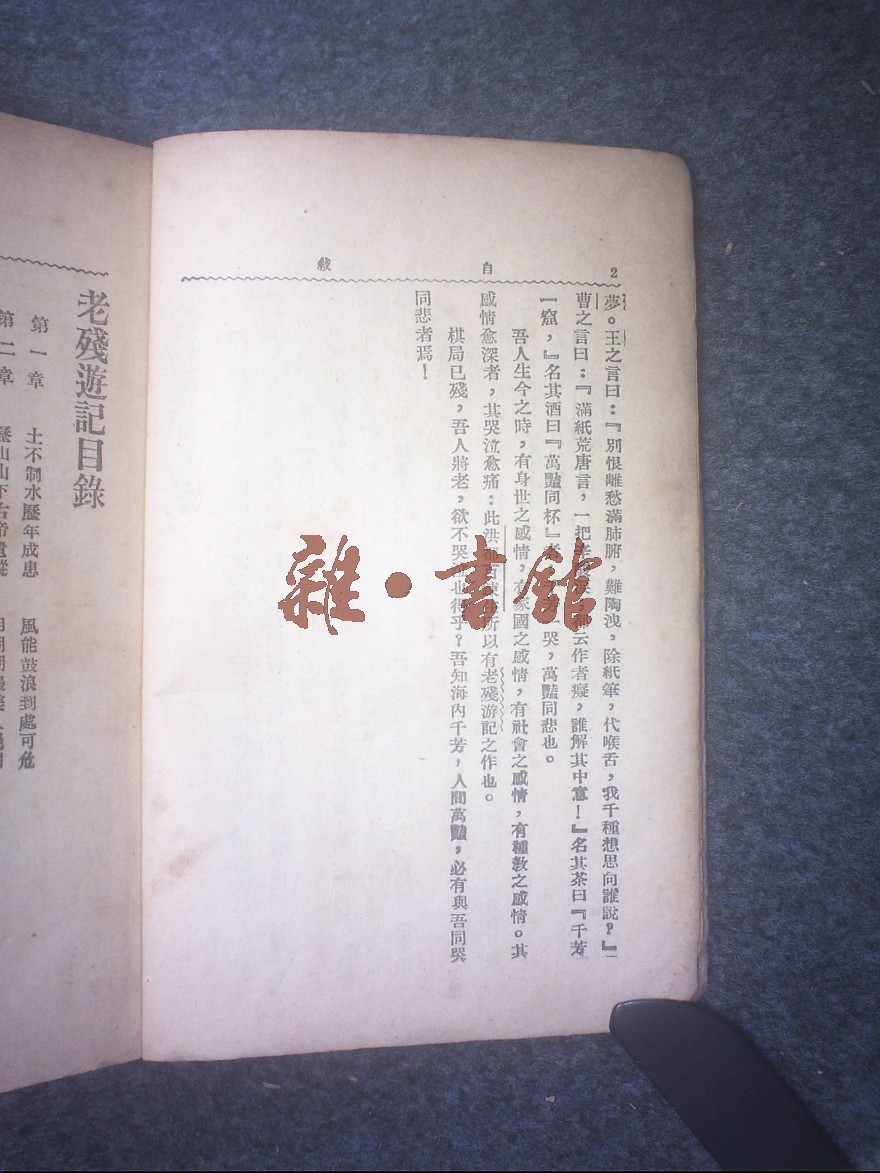 2 自 敍
夢。王之言曰：『別恨離愁滿肺腑，難陶洩，除紙筆，代喉舌，我千種想思向誰說？』
曹之言曰：『滿紙荒唐言，一把淚，云作者癡，誰解其中意！』名其茶曰『千芳
一窟，』名其酒曰『萬豔同杯』者，芳一哭，萬豔同悲也。
吾人生今之時，有身世之感情，有家國之感情，有社會之感情，有種教之感情。其
感情愈深者，其哭泣愈痛：此洪所以有老殘游記之作也。
棋局已殘，吾人將老，欲不哭也得乎？吾知海內千芳，人間萬豔，必有與吾同哭
同悲者焉！
老殘遊記目錄
第一章 土不制水歷年成患 風能鼓浪到處可危
第二章 歷山山下古帝遺蹤
雜·書館